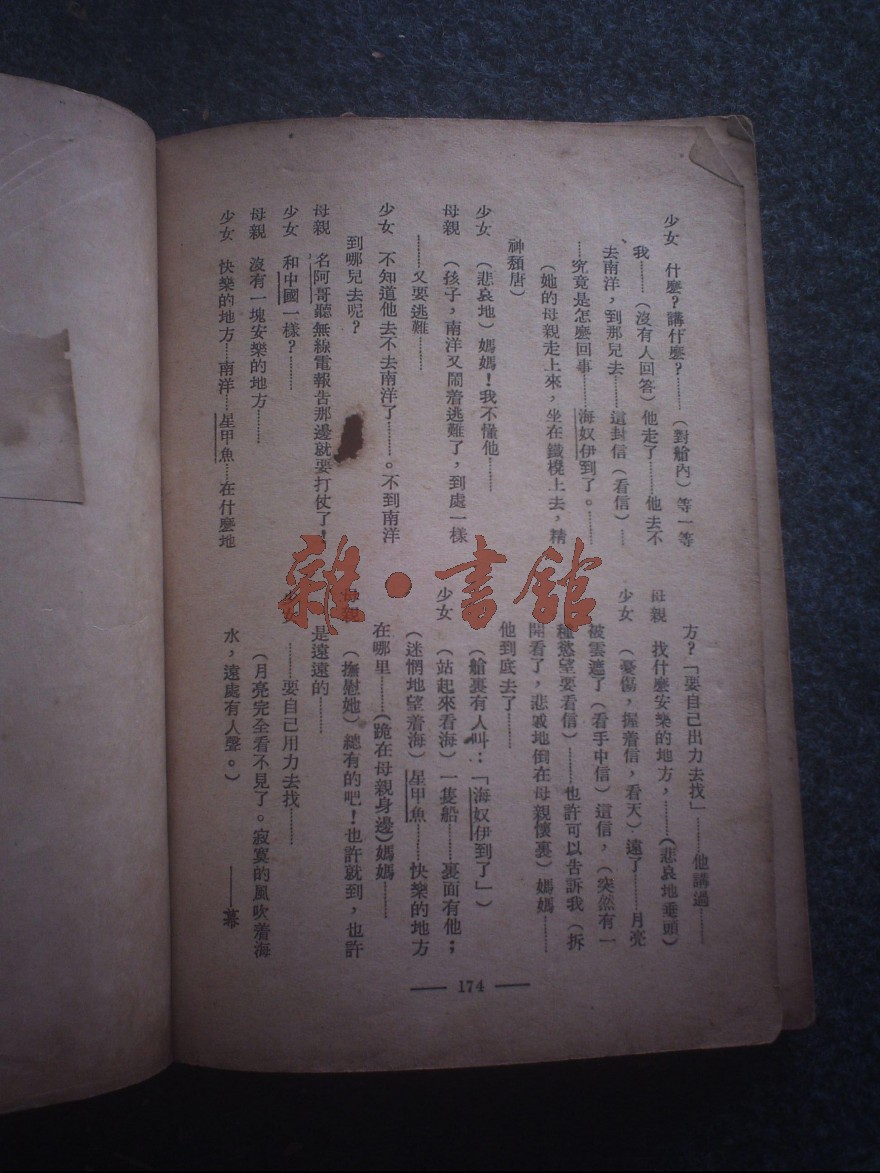 少女　什麼？講什麼？………（對艙內）等一等
我………（沒有人回答）他走了………他去不
去南洋，到那兒去………這封信（看信）……
……究竟是怎麼回事………海奴伊到了。………
（她的母親走上來，坐在鐵櫈上去，精
神頹唐）
少女　（悲哀地）媽媽！我不懂他………
母親　（孩子，南洋又鬧着逃難了，到處一樣
………又要逃難………
少女　不知道他去不去南洋了………。不到南洋
到哪兒去呢？
母親　名阿哥聽無線電報告那邊就要打仗了！
少女　和中國一樣？………
母親　沒有一塊安樂的地方………
少女　快樂的地方……南洋……星甲魚……在什麼地
方？「要自己出力去找」………他講過………
母親　找什麼安樂的地方，………（悲哀地垂頭）
少女　（憂傷，握着信，看天）遠了………月亮
被雲遮了（看手中信）這信，（突然有一
種慾望要看信）………也許可以告訴我（拆
開看了，悲戚地倒在母親懷裏）媽媽………
他到底去了………
（艙裏有人叫：「海奴伊到了」）
少女　（站起來看海）一隻船………裏面有他；
（迷惘地望着海）星甲魚………快樂的地方
在哪里………（跪在母親身邊）媽媽………
母親　（撫慰她）總有的吧！也許就到，也許
是遠遠的………
少女　………要自己用力去找………
（月亮完全看不見了。寂寞的風吹着海
水，遠處有人聲。）
——幕
— 174 —
雜·書館